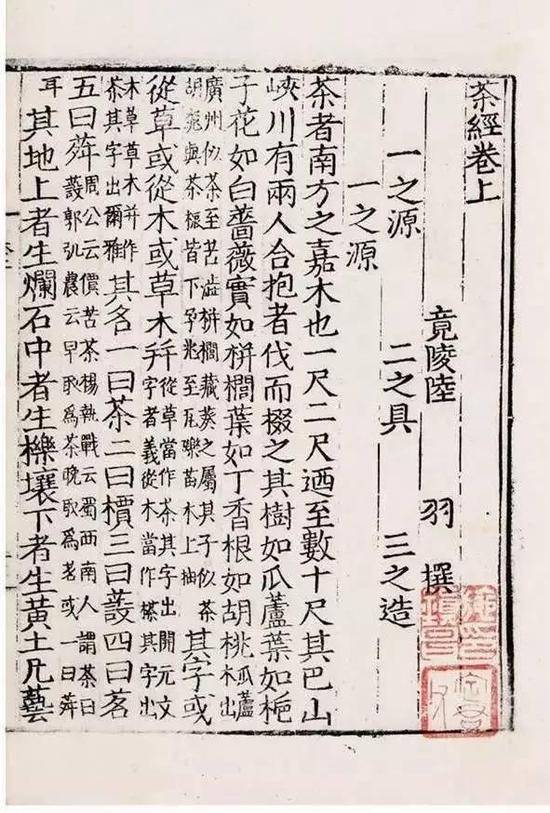 茶經卷上
竟陵陸　羽　撰
一之源　二之具　三之造
一之源
茶者南方之嘉木也一尺二尺迺至數十尺其巴山
峽川有兩人合抱者伐而掇之其樹如瓜蘆葉如梔
子花如白薔薇實如栟櫚葉如丁香根如胡桃瓜蘆木出
廣州似茶至苦澁栟櫚藏葵之屬其子似茶胡桃與茶根皆下孕兆至瓦礫苗木上抽其字或
從草或從木或草木并從草當作茶其字出開元文字者義從木當作㮆其字出
木草草木并作茶其字出爾雅其名一曰茶二曰檟三曰蔎四曰茗
五曰荈周公云檟苦茶楊執戟云蜀西南人謂茶曰蔎郭弘農云早取為茶晚取為茗或一曰荈
耳其地上者生爛石中者生櫟壤下者生黃土凡藝